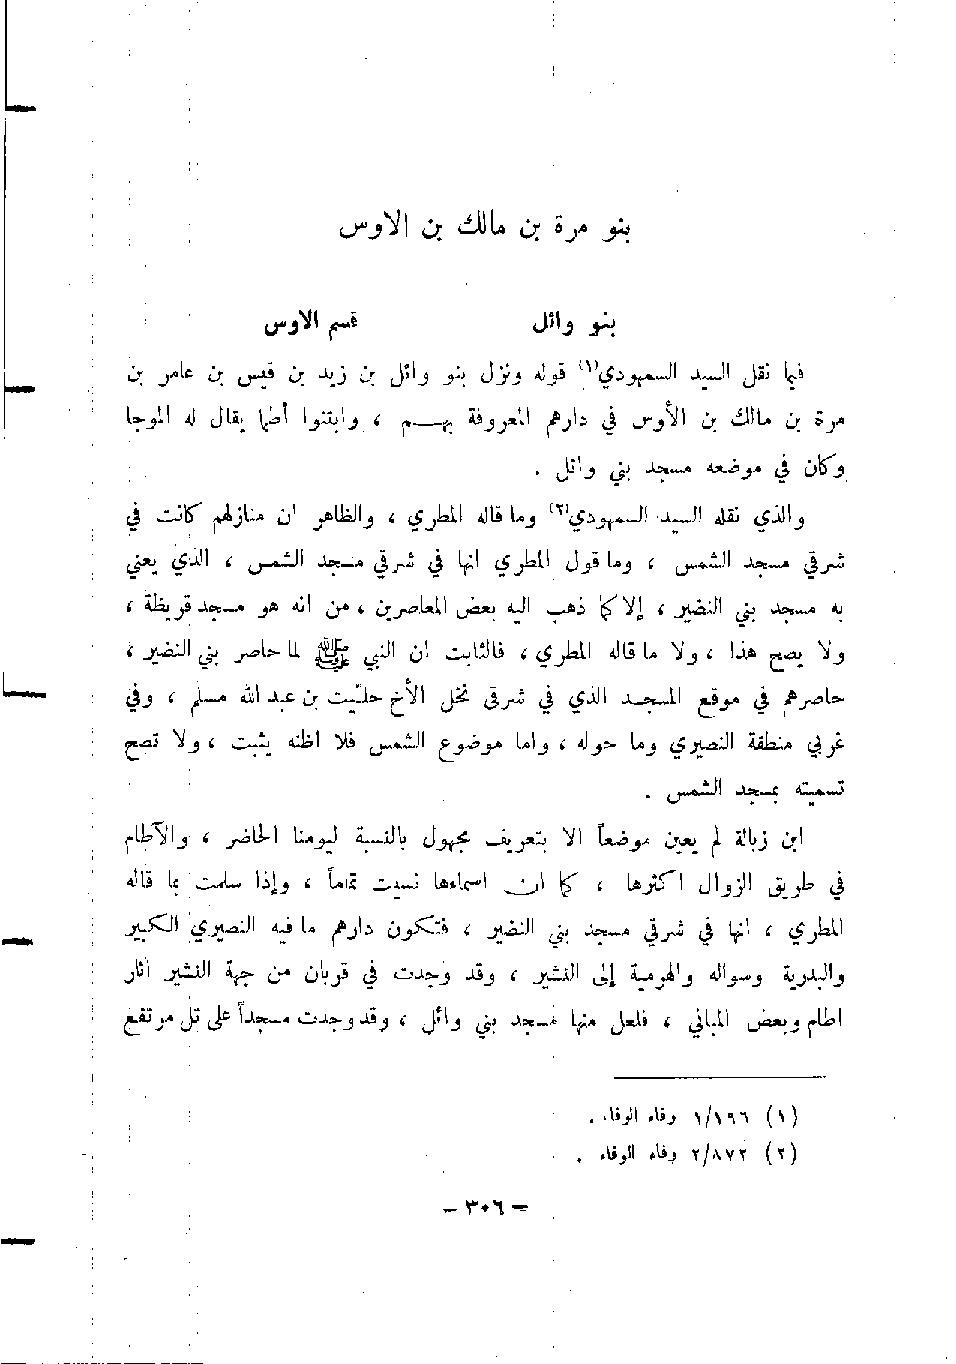 بنو مرة بن مالك بن الاوس
بنو وائل قسم الاوس
فيما نقل السيد السمهودي(١) قوله ونزل بنو وائل بن زيد بن قيس بن عامر بن
مرة بن مالك بن الأوس في دارهم المعروفة بهم ، وابتنوا أطما يقال له الموجا
وكان في موضعه مسجد بني وائل .
والذي نقله السيد السمهودي(٢) وما قاله المطري ، والظاهر ان منازلهم كانت في
شرقي مسجد الشمس ، وما قول المطري انها في شرقي مسجد الشمس ، الذي يعني
به مسجد بني النضير ، إلا كما ذهب اليه بعض المعاصرين ، من انه هو مسجد قريظة ،
ولا يصح هذا ، ولا ما قاله المطري ، فالثابت ان النبي ﷺ لما حاصر بني النضير ،
حاصرهم في موقع المسجد الذي في شرقي نخل الأخ حليّت بن عبد الله مسلم ، وفي
غربي منطقة النصيري وما حوله ، واما موضوع الشمس فلا اظنه يثبت ، ولا تصح
تسميته بمسجد الشمس .
ابن زبالة لم يعين موضعاً الا بتعريف مجهول بالنسبة ليومنا الحاضر ، والآطام
في طريق الزوال اكثرها ، كما ان اسماءها نسيت تماماً ، وإذا سلمت بما قاله
المطري ، انها في شرقي مسجد بني النضير ، فتكون دارهم ما فيه النصيري الكبير
والبدرية وسواله والهومية إلى النشير ، وقد وجدت في قربان من جهة النشير آثار
اطام وبعض المباني ، فلعل منها مسجد بني وائل ، وقد وجدت مسجداً على تل مرتفع
(١) ١/١٩٦ وفاء الوفاء .
(٢) ٢/٨٧٢ وفاء الوفاء .
– ٣٠٦ –